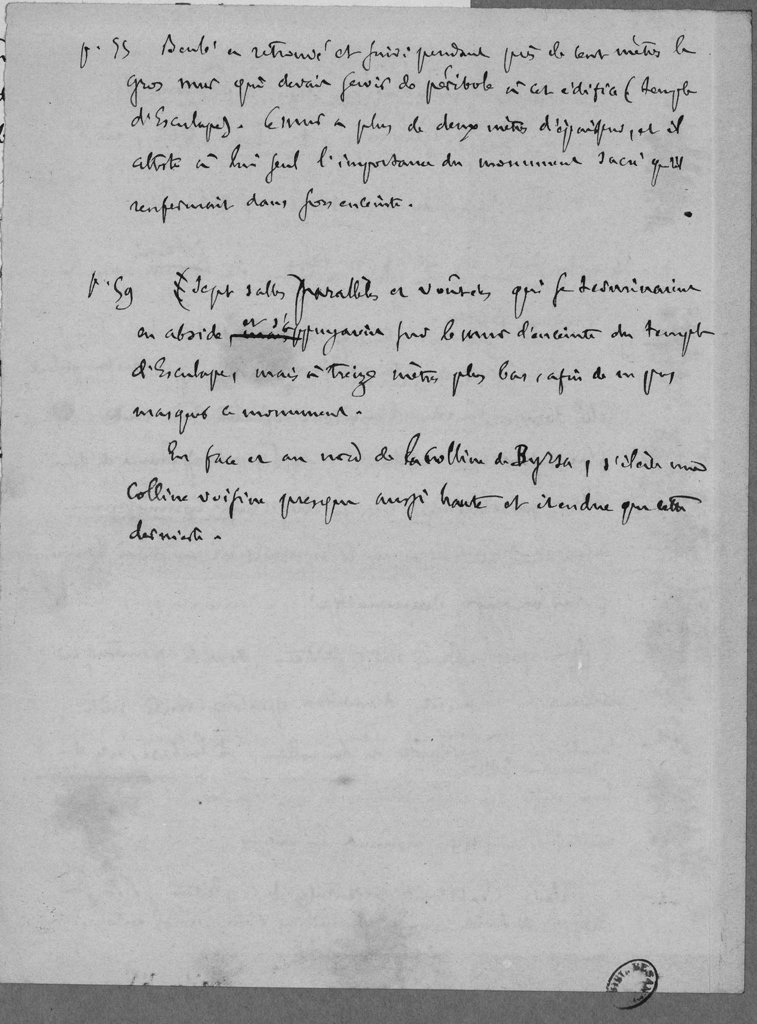 p. 55 Beulé a retrouvé et suivi pendant près de cent mètres le
gros mur qui devait servir de péribole à cet édifice (temple
d'Esculape). Ce mur a plus de deux mètres d'épaisseur, et il
atteste à lui seul l'importance du monument sacré qu'il
renfermait dans son enceinte.
p. 59 (Sept salles) parallèles et voûtées qui se terminaient
en abside, et s'appuyaient sur le mur d'enceinte du temple
d'Esculape, mais à treize mètres plus bas, afin de ne pas
masquer ce monument.
En face et au nord de la colline de Byrsa, s'élève une
colline voisine presque aussi haute et étendue que cette
dernière.
BIBL. BESANÇ